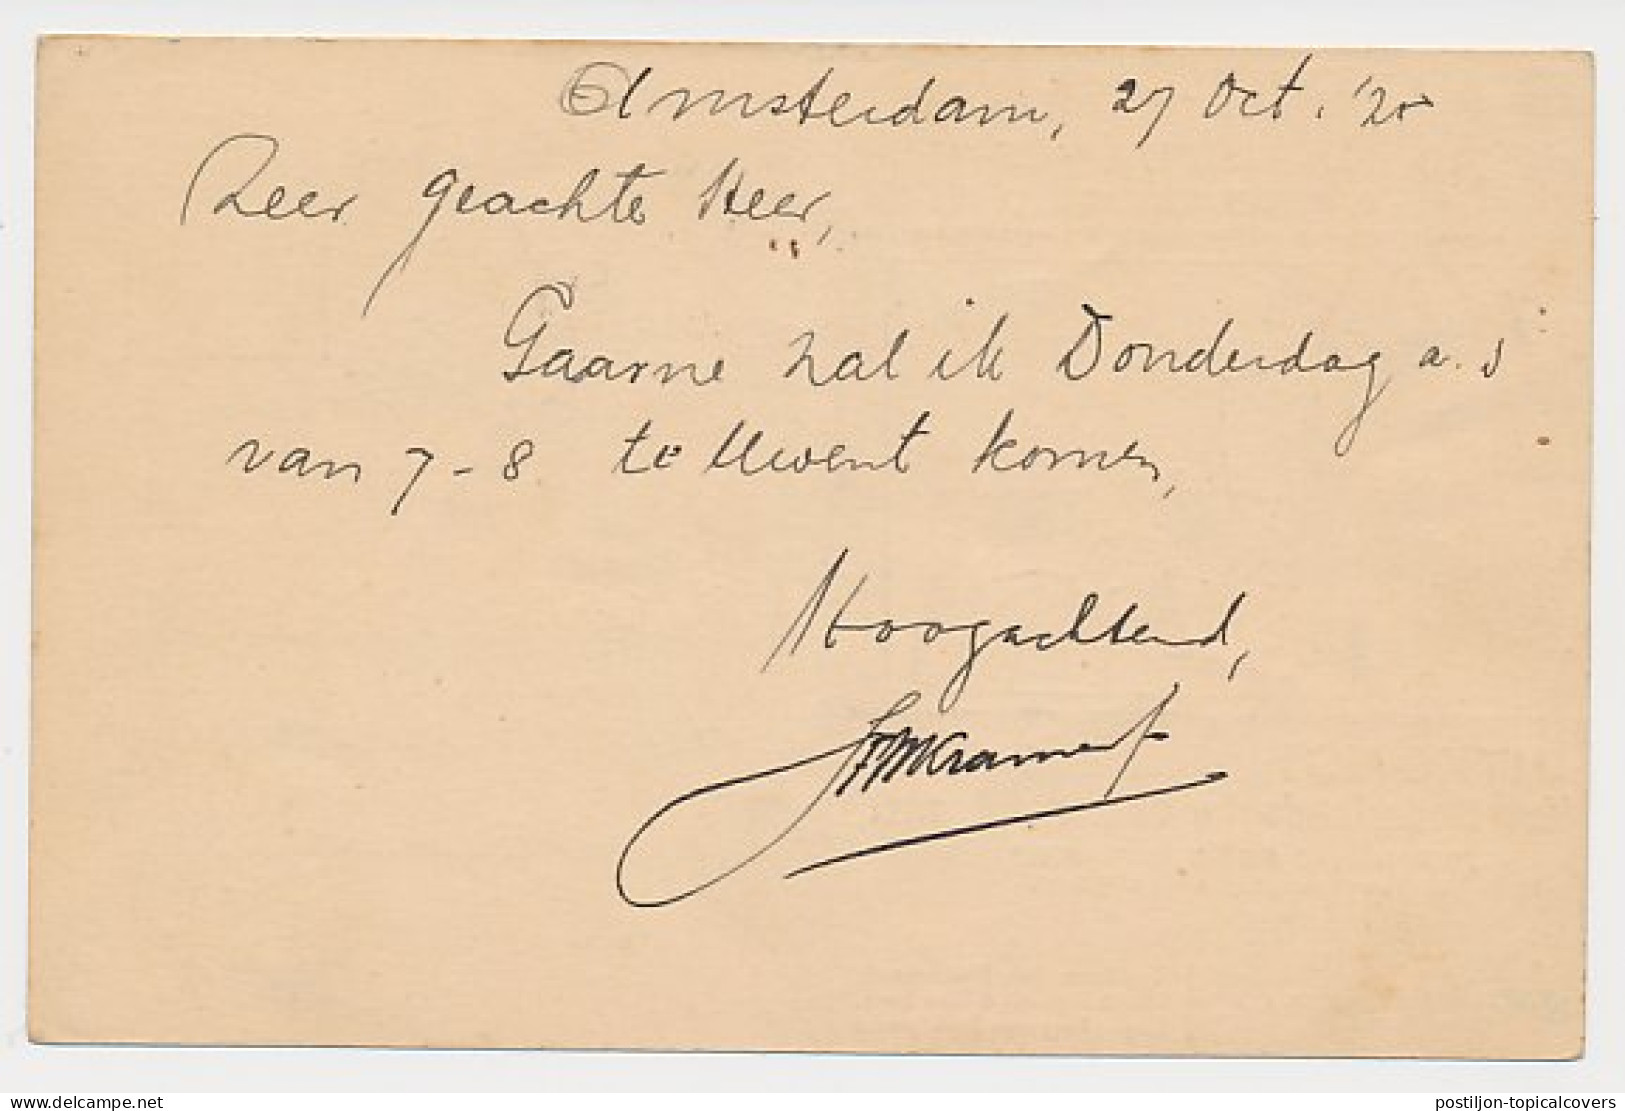 Amsterdam, 27 Oct. '20
Zeer geachte Heer,
Gaarne zal ik Donderdag a.s
van 7-8 te Uwent komen,
Hoogachtend,
Kramer
delcampe.net
postiljon-topicalcovers